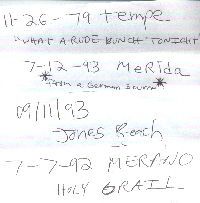 11-26-79 Tempe
"WHAT A RUDE BUNCH TONIGHT"
7-12-93 MeRida
* from a German source *
09/11/93
Jones Beach
7-7-92 MERANO
HOLY GRAIL